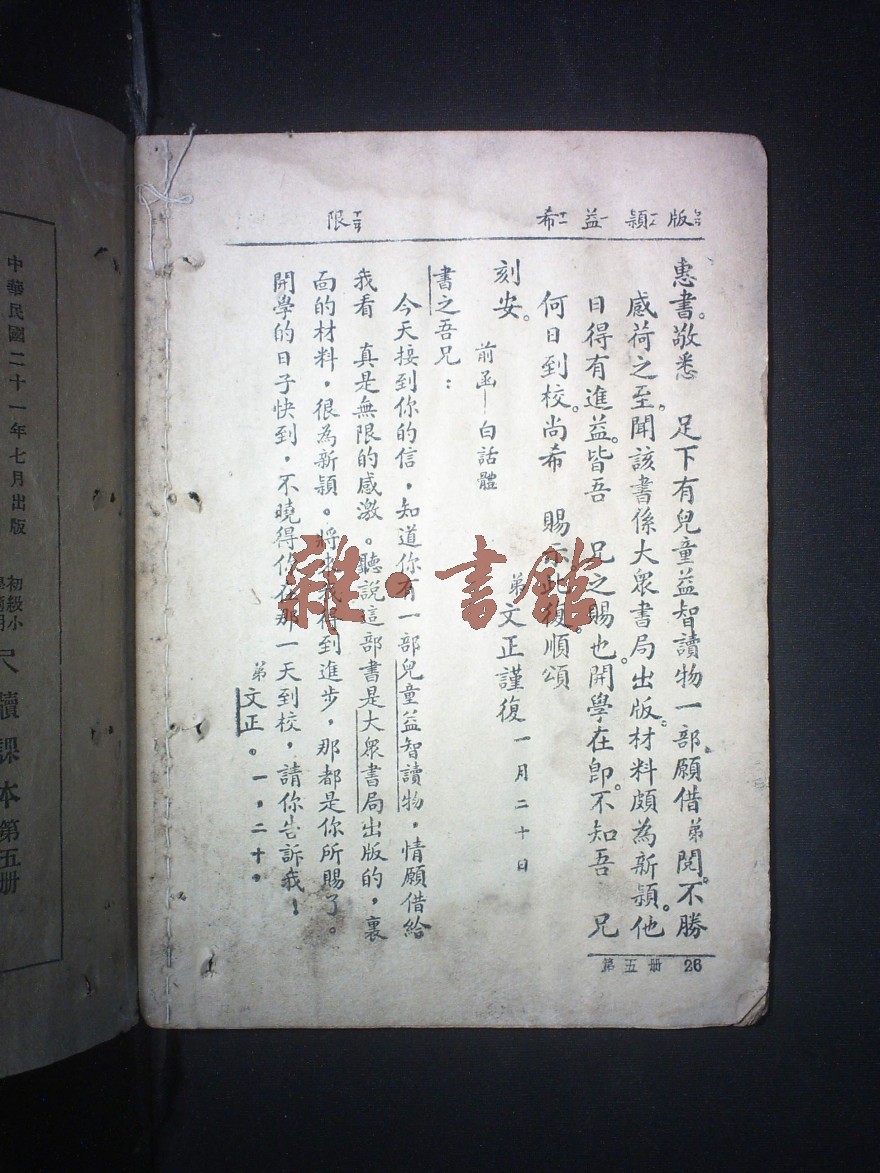 版 穎 益 希 限
惠書。敬悉　足下有兒童益智讀物一部。願借弟閱。不勝
感荷之至。聞該書係大眾書局出版。材料頗為新穎。他
日得有進益。皆吾　兄之賜也。開學在卽。不知吾　兄
何日到校。尚希　賜示此復順頌
刻安。　弟文正謹復　一月二十日
前函—白話體
書之吾兄：
今天接到你的信，知道你有一部兒童益智讀物，情願借給
我看　真是無限的感激。聽說這部書是大眾書局出版的，裏
面的材料，很為新穎。將來我得到進步，那都是你所賜了。
開學的日子快到，不曉得你在那一天到校，請你告訴我！
弟文正。一，二十。
第五册 26
中華民國二十一年七月出版
初級小
尺牘課本第五册
雜·書館